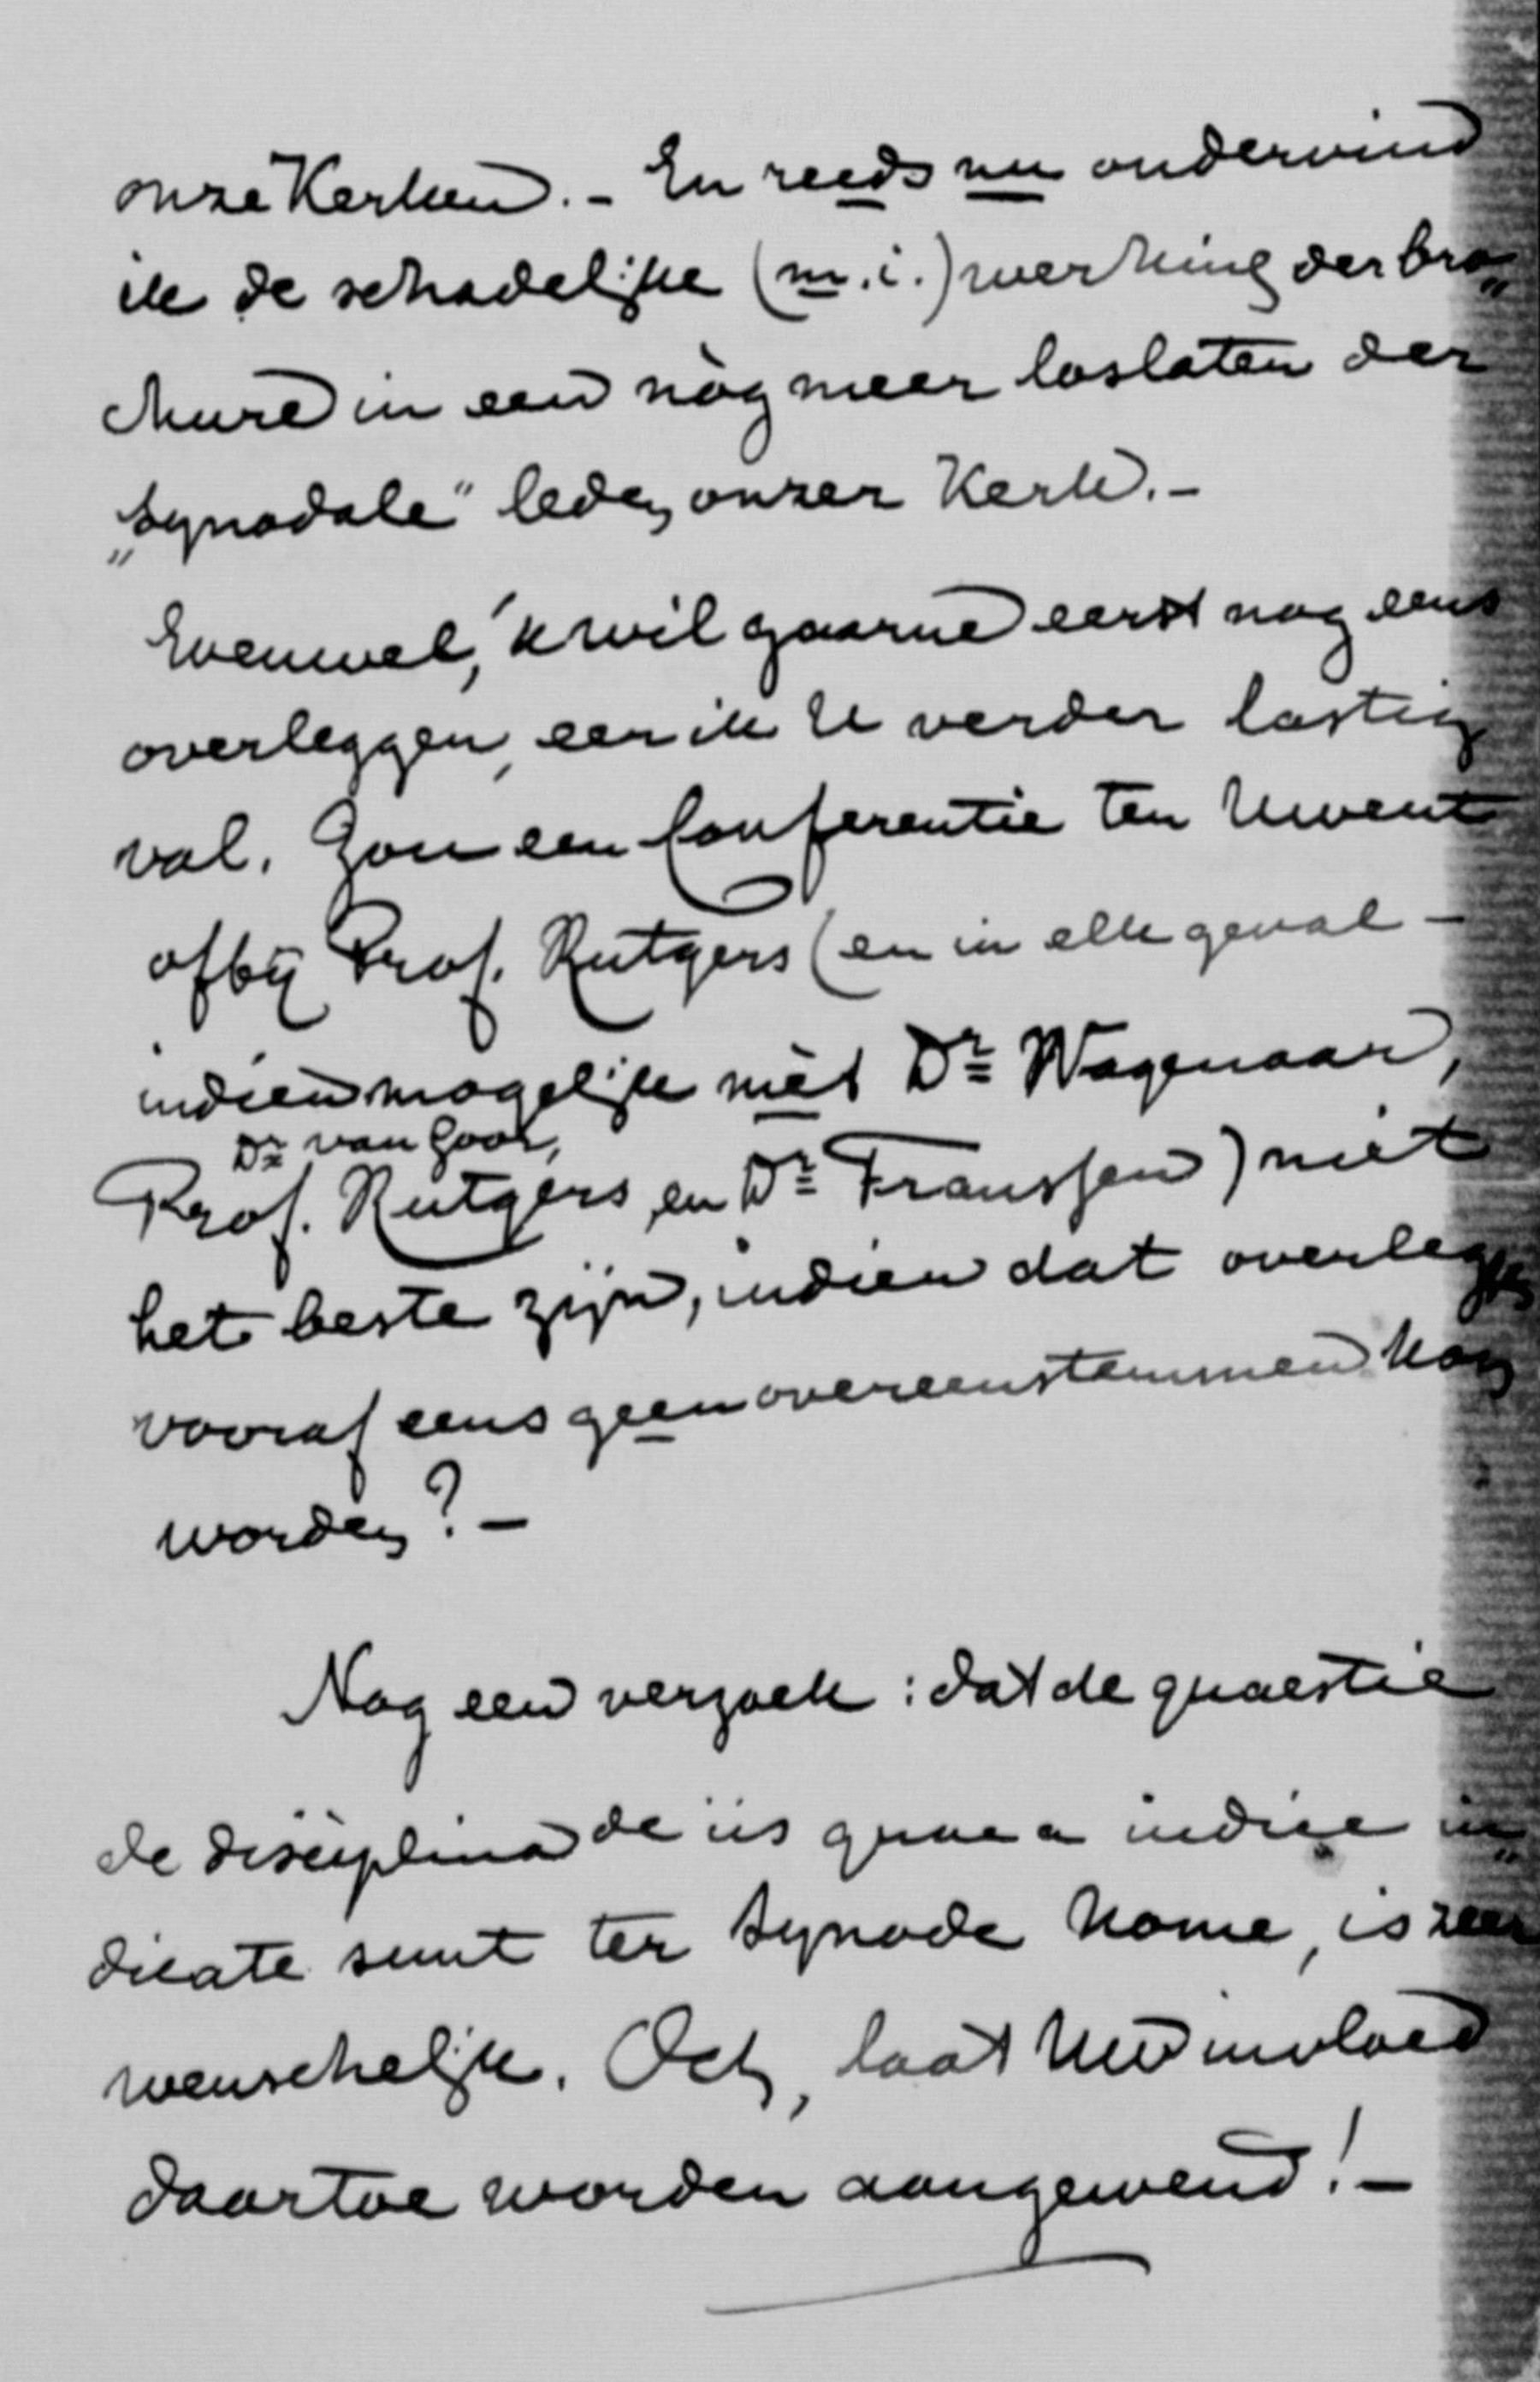 onze Kerken. - En reeds nu ondervind
ik de schadelijke (m.i.) werking der bro„
chure in een nòg meer loslaten der
„Synodale" leden onzer Kerk. -
Evenwel, 'k wil gaarne eerst nog eens
overleggen, eer ik U verder lastig
val. Zou een Conferentie ten Uwent
of bij Prof. Rutgers (en in elk geval -
indien mogelijk mèt Dr Wagenaar,
Dr van Goor,
Prof. Rutgers, en Dr Franssen) niet
het beste zijn, indien dat overleg
vooraf eens geen overeenstemmen kon
worden? -
Nog een verzoek: dat de quaestie
de disciplina de iis quae a iudice in„
dicate sunt ter Synode kome, is zeer
wenschelijk. Och, laat Uw invloed
daartoe worden aangewend! -